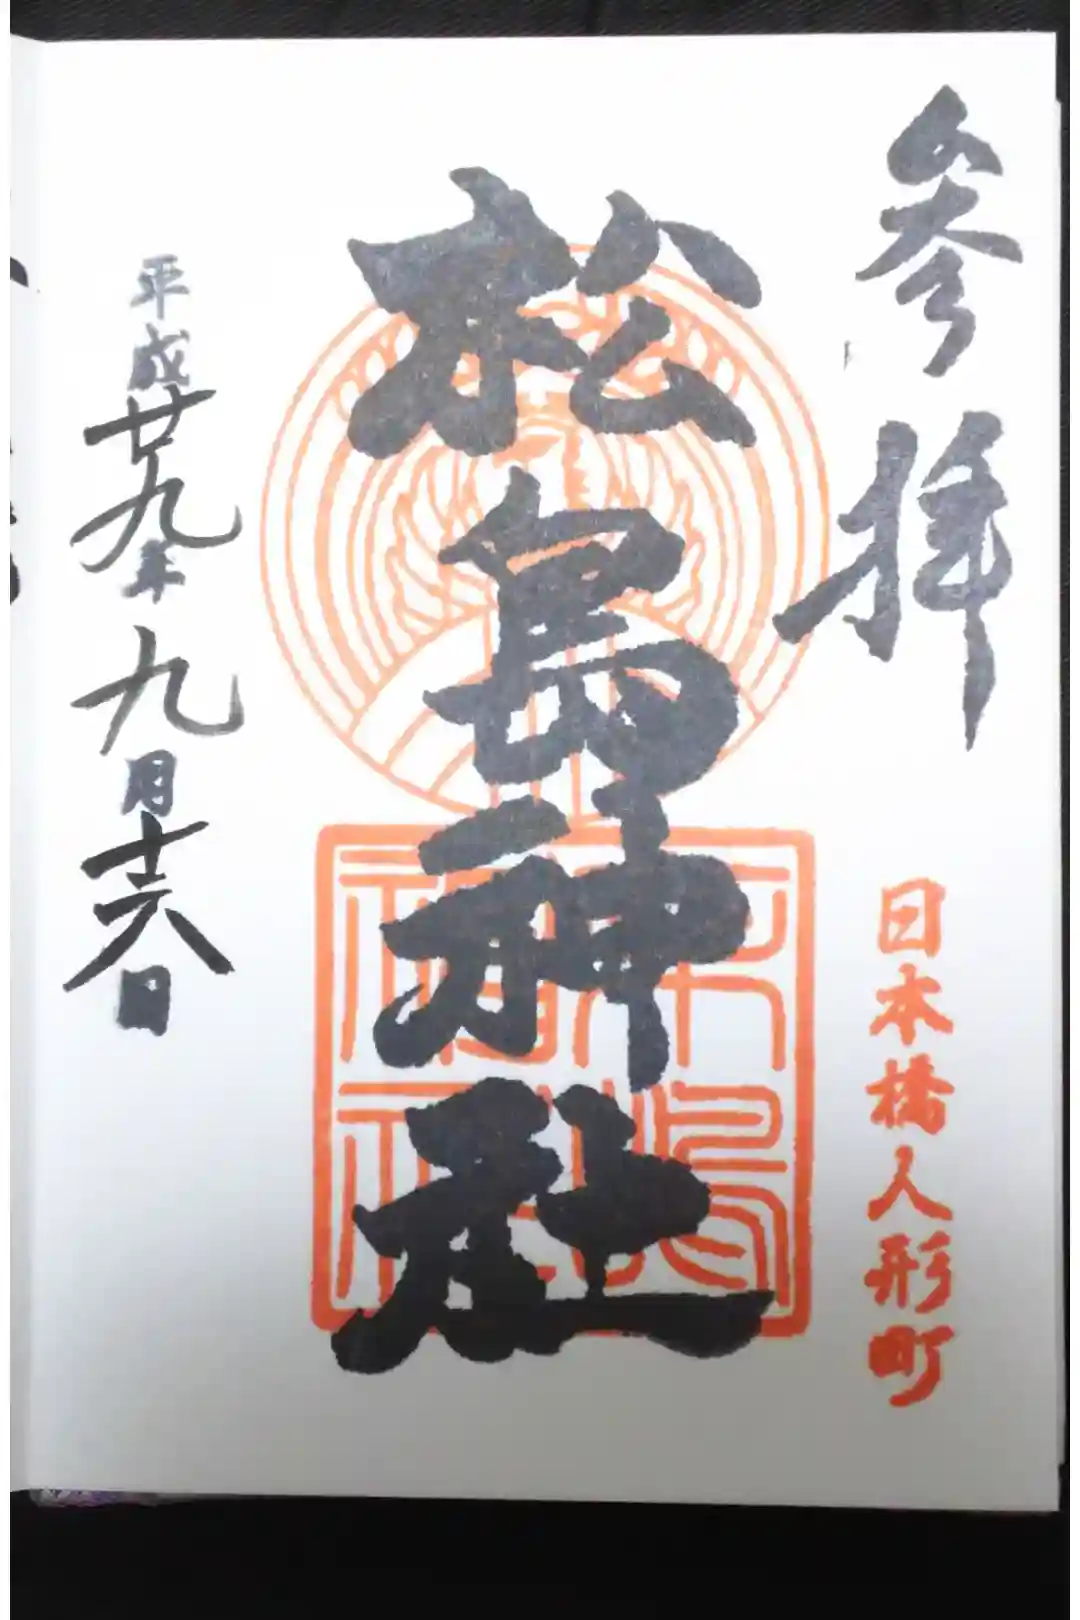 参拝
日本橋人形町
松島神社
平成廿九年九月十六日